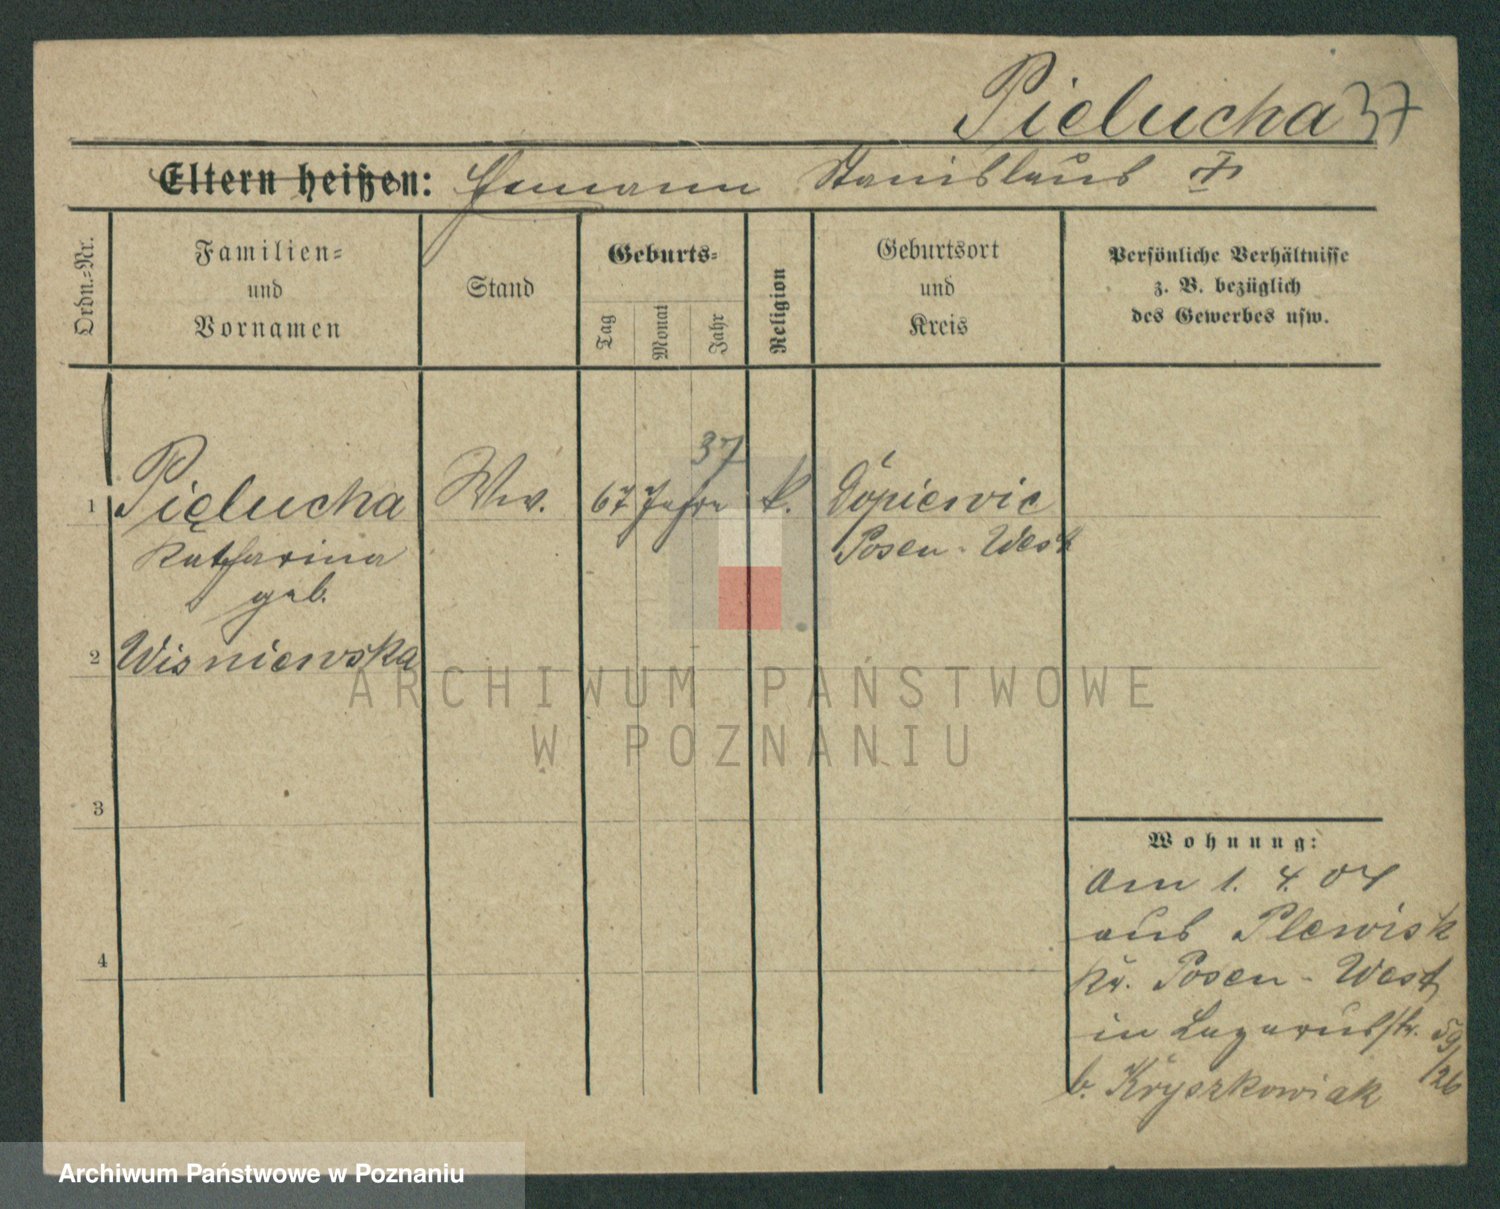 Pielucha 37
Eltern heißen: Ehemann Stanislaus
Ordn.=Nr.
Familien=
und
Vornamen
Stand
Geburts=
Tag
Monat
Jahr
Religion
Geburtsort
und
Kreis
Persönliche Verhältnisse
z. B. bezüglich
des Gewerbes usw.
37
1 Pielucha Ww. 67 Jahre k. Dopiewic
Katharina Posen-West
geb.
2 Wisniewska
3
4
Wohnung:
Am 1. 4. 04
aus Plewisk
Kr. Posen-West
in Lazarusstr. 59/26
b. Kryszkowiak
ARCHIWUM PAŃSTWOWE
W POZNANIU
Archiwum Państwowe w Poznaniu